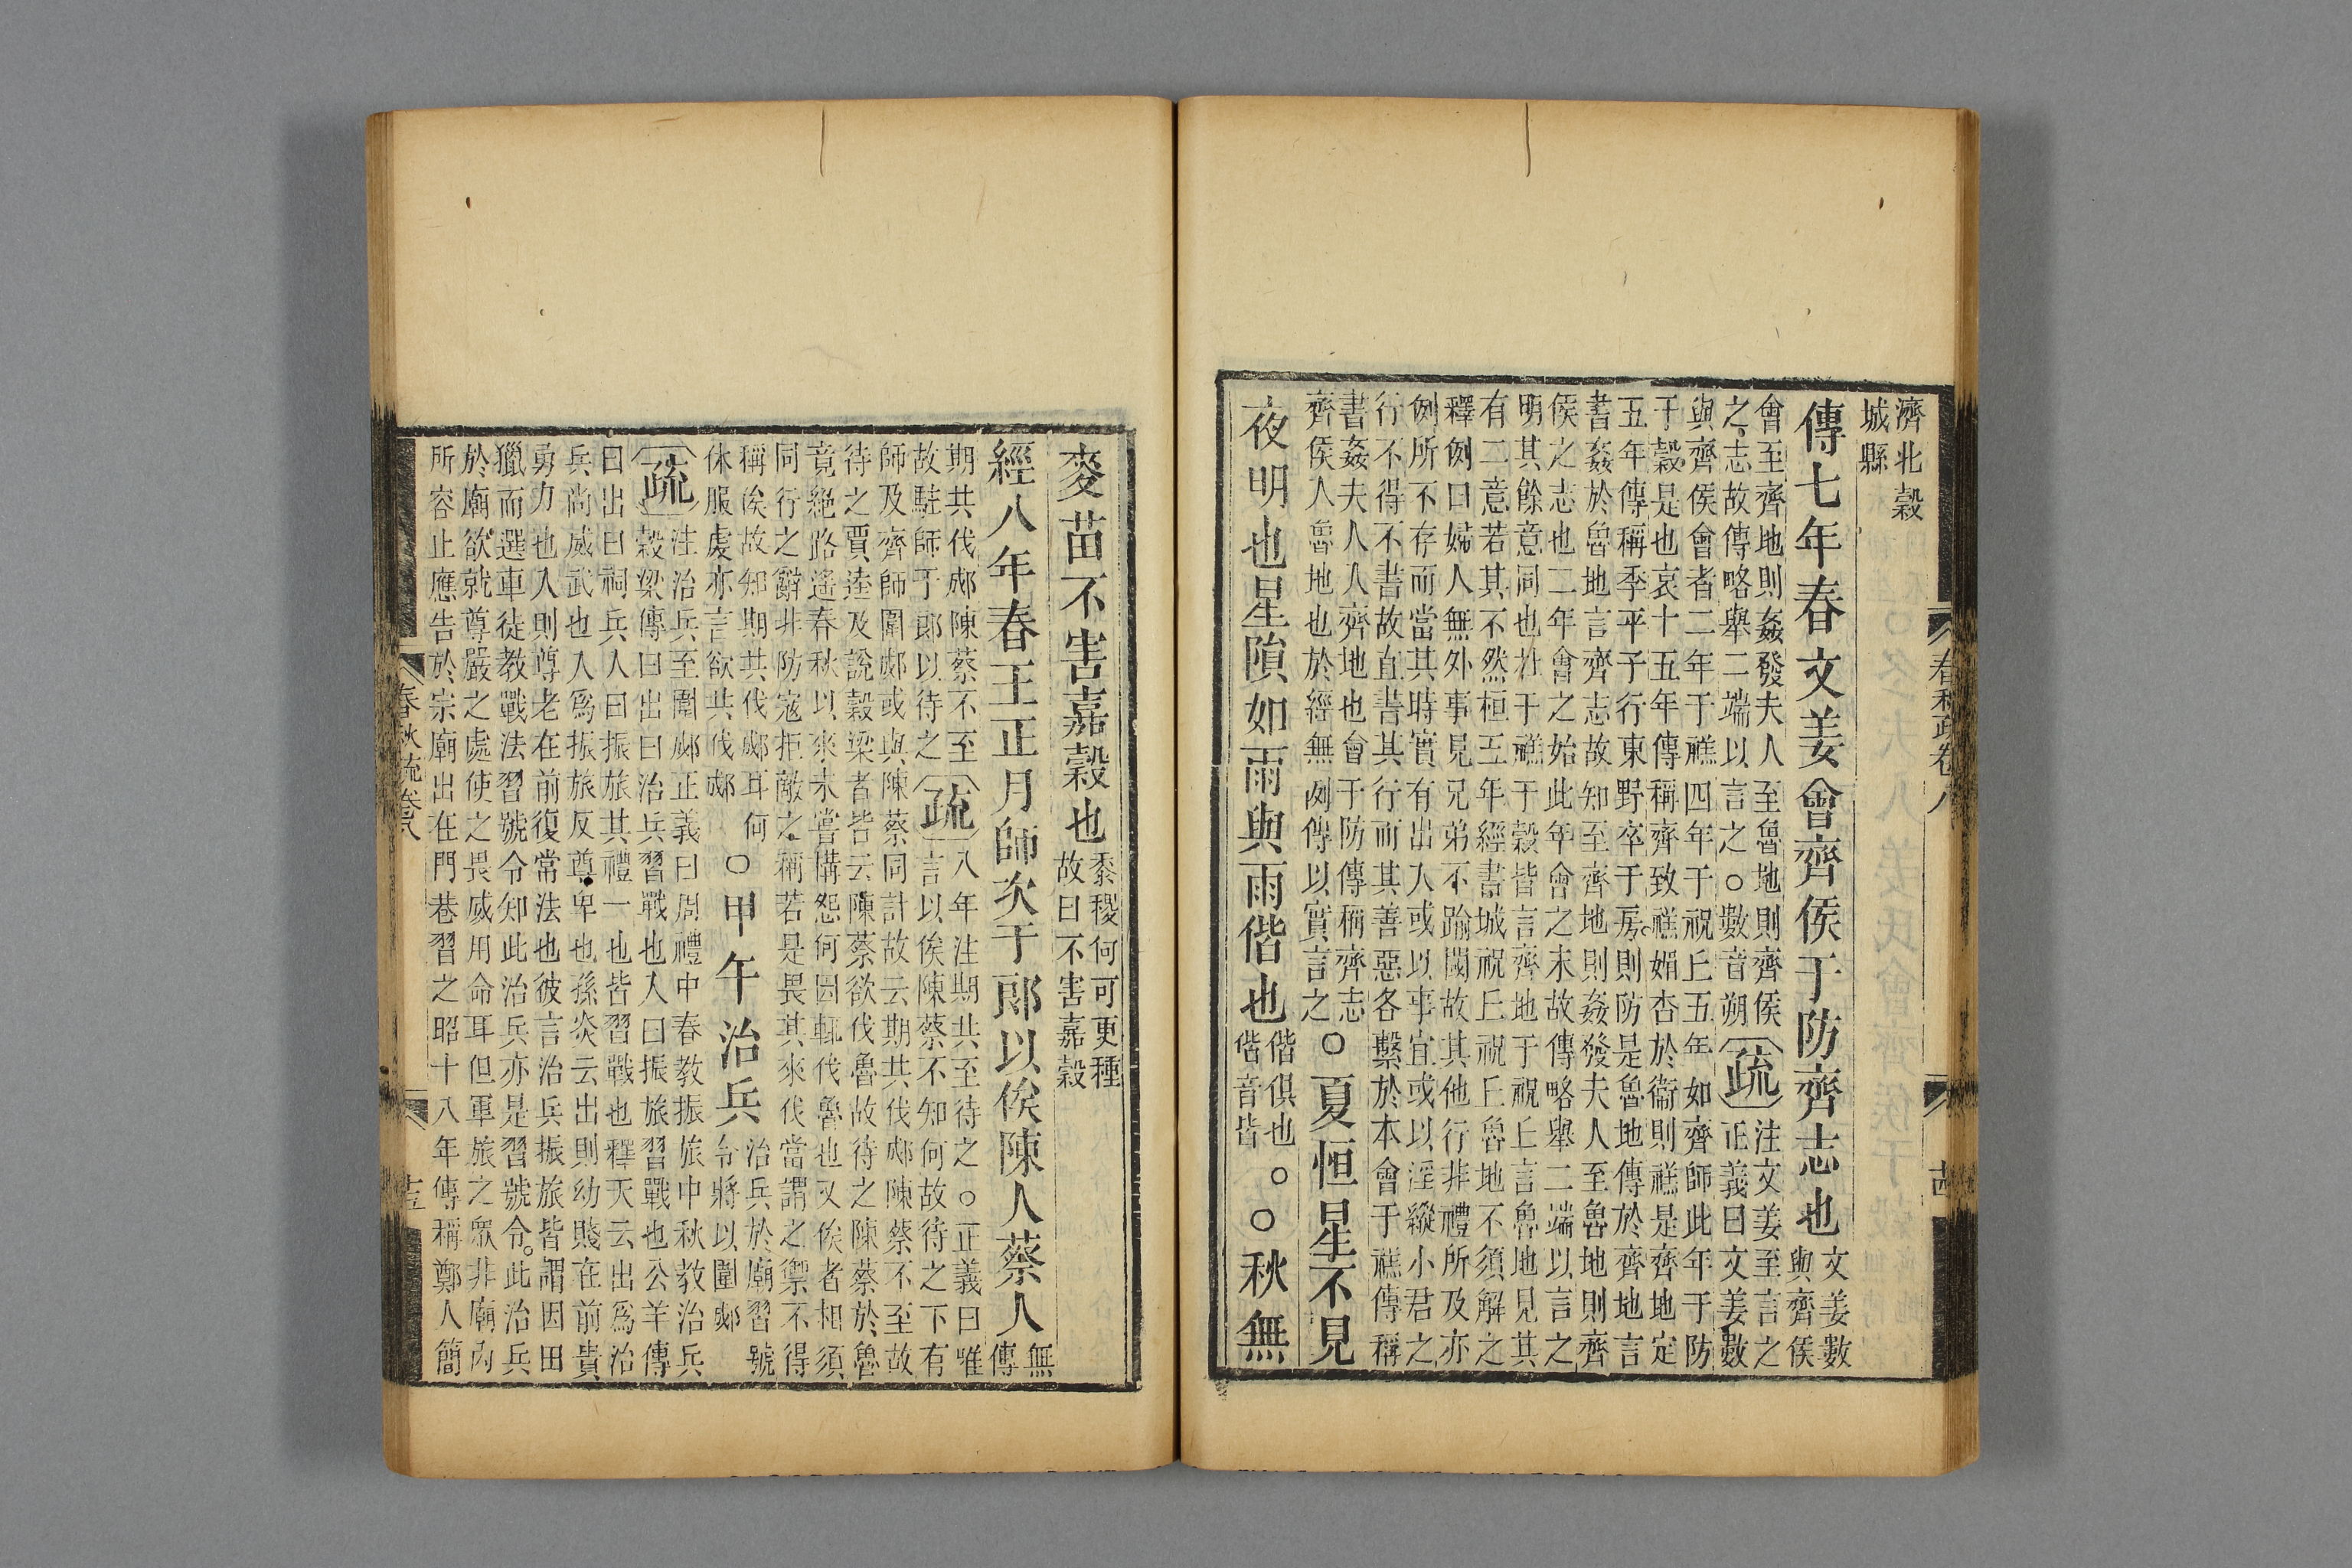 濟北穀
城縣
傳七年春文姜會齊侯于防齊志也
文姜數
與齊侯
會至齊地則姦發夫人至魯地則齊侯
之志故傳略舉二端以言之○數音朔
疏
注文姜至言之
正義曰文姜數
與齊侯會者二年于禚四年于祝丘五年如齊師此年于防
于穀是也哀十五年傳稱齊致禚媚杏於衞則禚是齊地定
五年傳稱季平子行東野卒于房則防是魯地傳於齊地言
書姦於魯地言齊志故知至齊地則姦發夫人至魯地則齊
侯之志也二年會之始此年會之末故傳略舉二端以言之
明其餘意同也社于禚于穀皆言齊地于祝丘言魯地見其
有二意若其不然桓五年經書城祝丘祝丘魯地不須解之
釋例曰婦人無外事見兄弟不踰閾故其他行非禮所及亦
例所不存而當其時實有出入或以事宜或以淫縱小君之
行不得不書故直書其行而其善惡各繫於本會于禚傳稱
書姦夫人入齊地也會于防傳稱齊志
齊侯人魯地也於經無例傳以實言之
○夏恒星不見
夜明也星隕如雨與雨偕也
偕俱也○
偕音皆
○秋無
春秋疏卷八
麥苗不害嘉穀也
黍稷何可更種
故曰不害嘉穀
經八年春王正月師次于郎以俟陳人蔡人
無
傳
期共伐郕陳蔡不至
故駐師于郎以待之
疏
八年注期共至待之○正義曰唯
言以俟陳蔡不知何故待之下有
師及齊師圍郕或與陳蔡同計故云期共伐郕陳蔡不至故
待之賈逵及說穀梁者皆云陳蔡欲伐魯故待之陳蔡於魯
竟絕路遙春秋以來未嘗構怨何因輒伐魯也又俟者相須
同行之辭非防寇拒敵之稱若是畏其來伐當謂之禦不得
稱俟故知期共伐郕耳何
休服虔亦言欲共伐郕
○甲午治兵
治兵於廟習號
令將以圍郕
疏
注治兵至圍郕正義曰周禮中春教振旅中秋教治兵
穀梁傳曰出曰治兵習戰也入曰振旅習戰也公羊傳
曰出曰祠兵入曰振旅其禮一也皆習戰也釋天云出爲治
兵尚威武也入爲振旅反尊卑也孫炎云出則幼賤在前貴
勇力也入則尊老在前復常法也彼言治兵振旅皆謂因田
獵而選車徒教戰法習號令知此治兵亦是習號令此治兵
於廟欲就尊嚴之處使之畏威用命耳但軍旅之眾非廟內
所容止應告於宗廟出在門巷習之昭十八年傳稱鄭人簡
春秋疏卷八